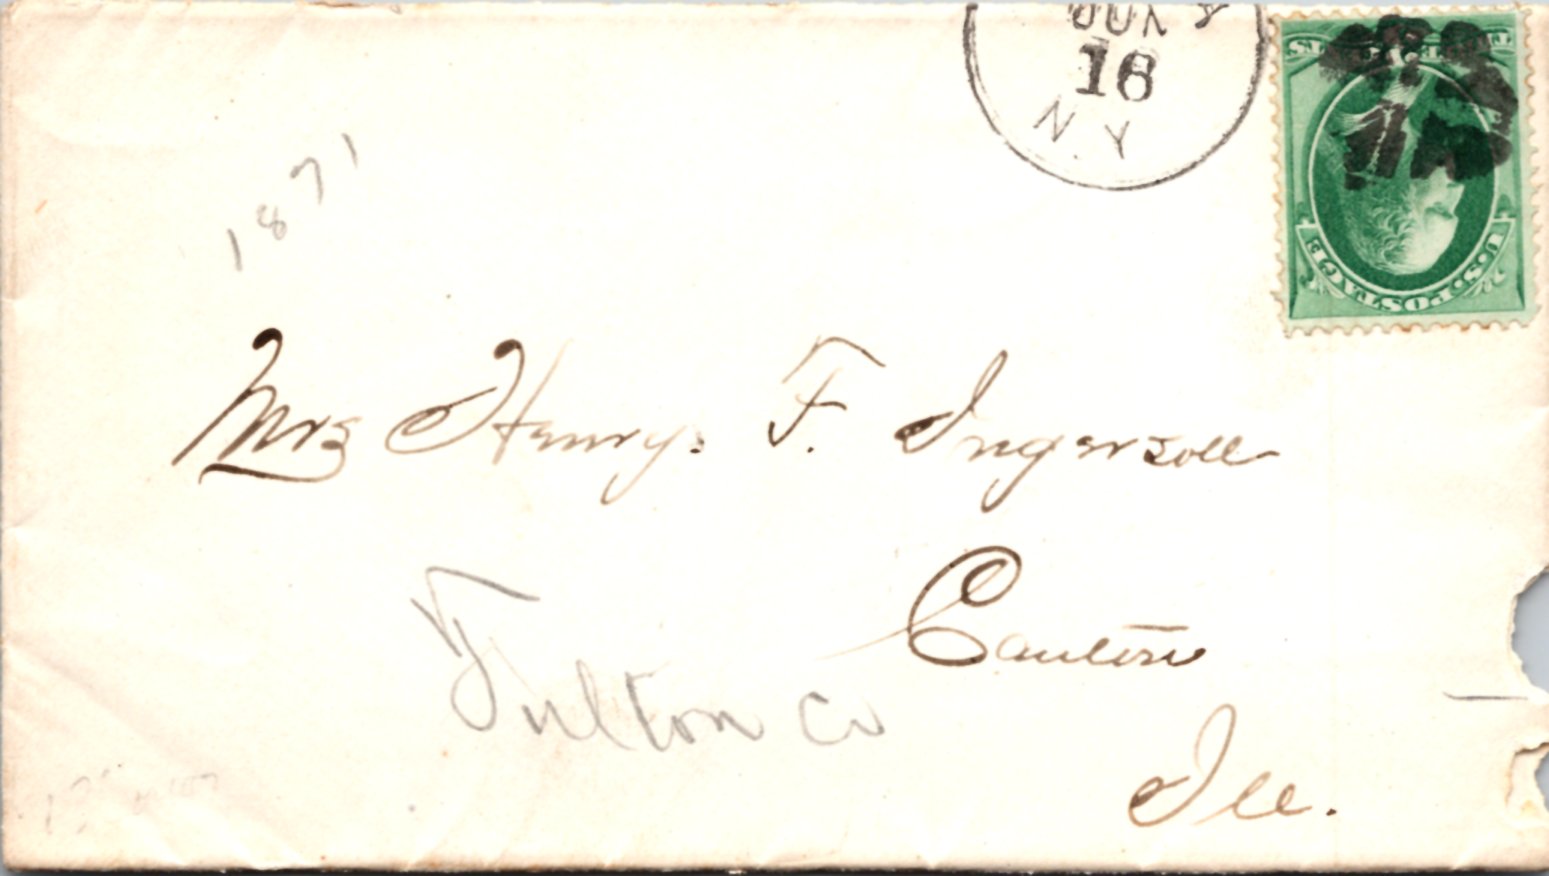 JUN
16
N.Y
U.S. POSTAGE
1871
Mrs Henry. F. Ingersoll
Canton
Fulton Co
Ill.